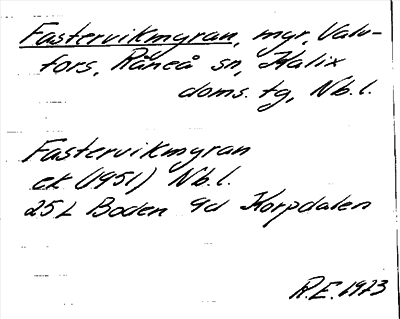 Fastervikmyran, myr, Valv-
fors, Råneå sn, Kalix
doms. tg, Nb. l.
Fastervikmyran
ek (1951) Nb. l.
25 L Boden 9d Korpdalen
R.E. 1973